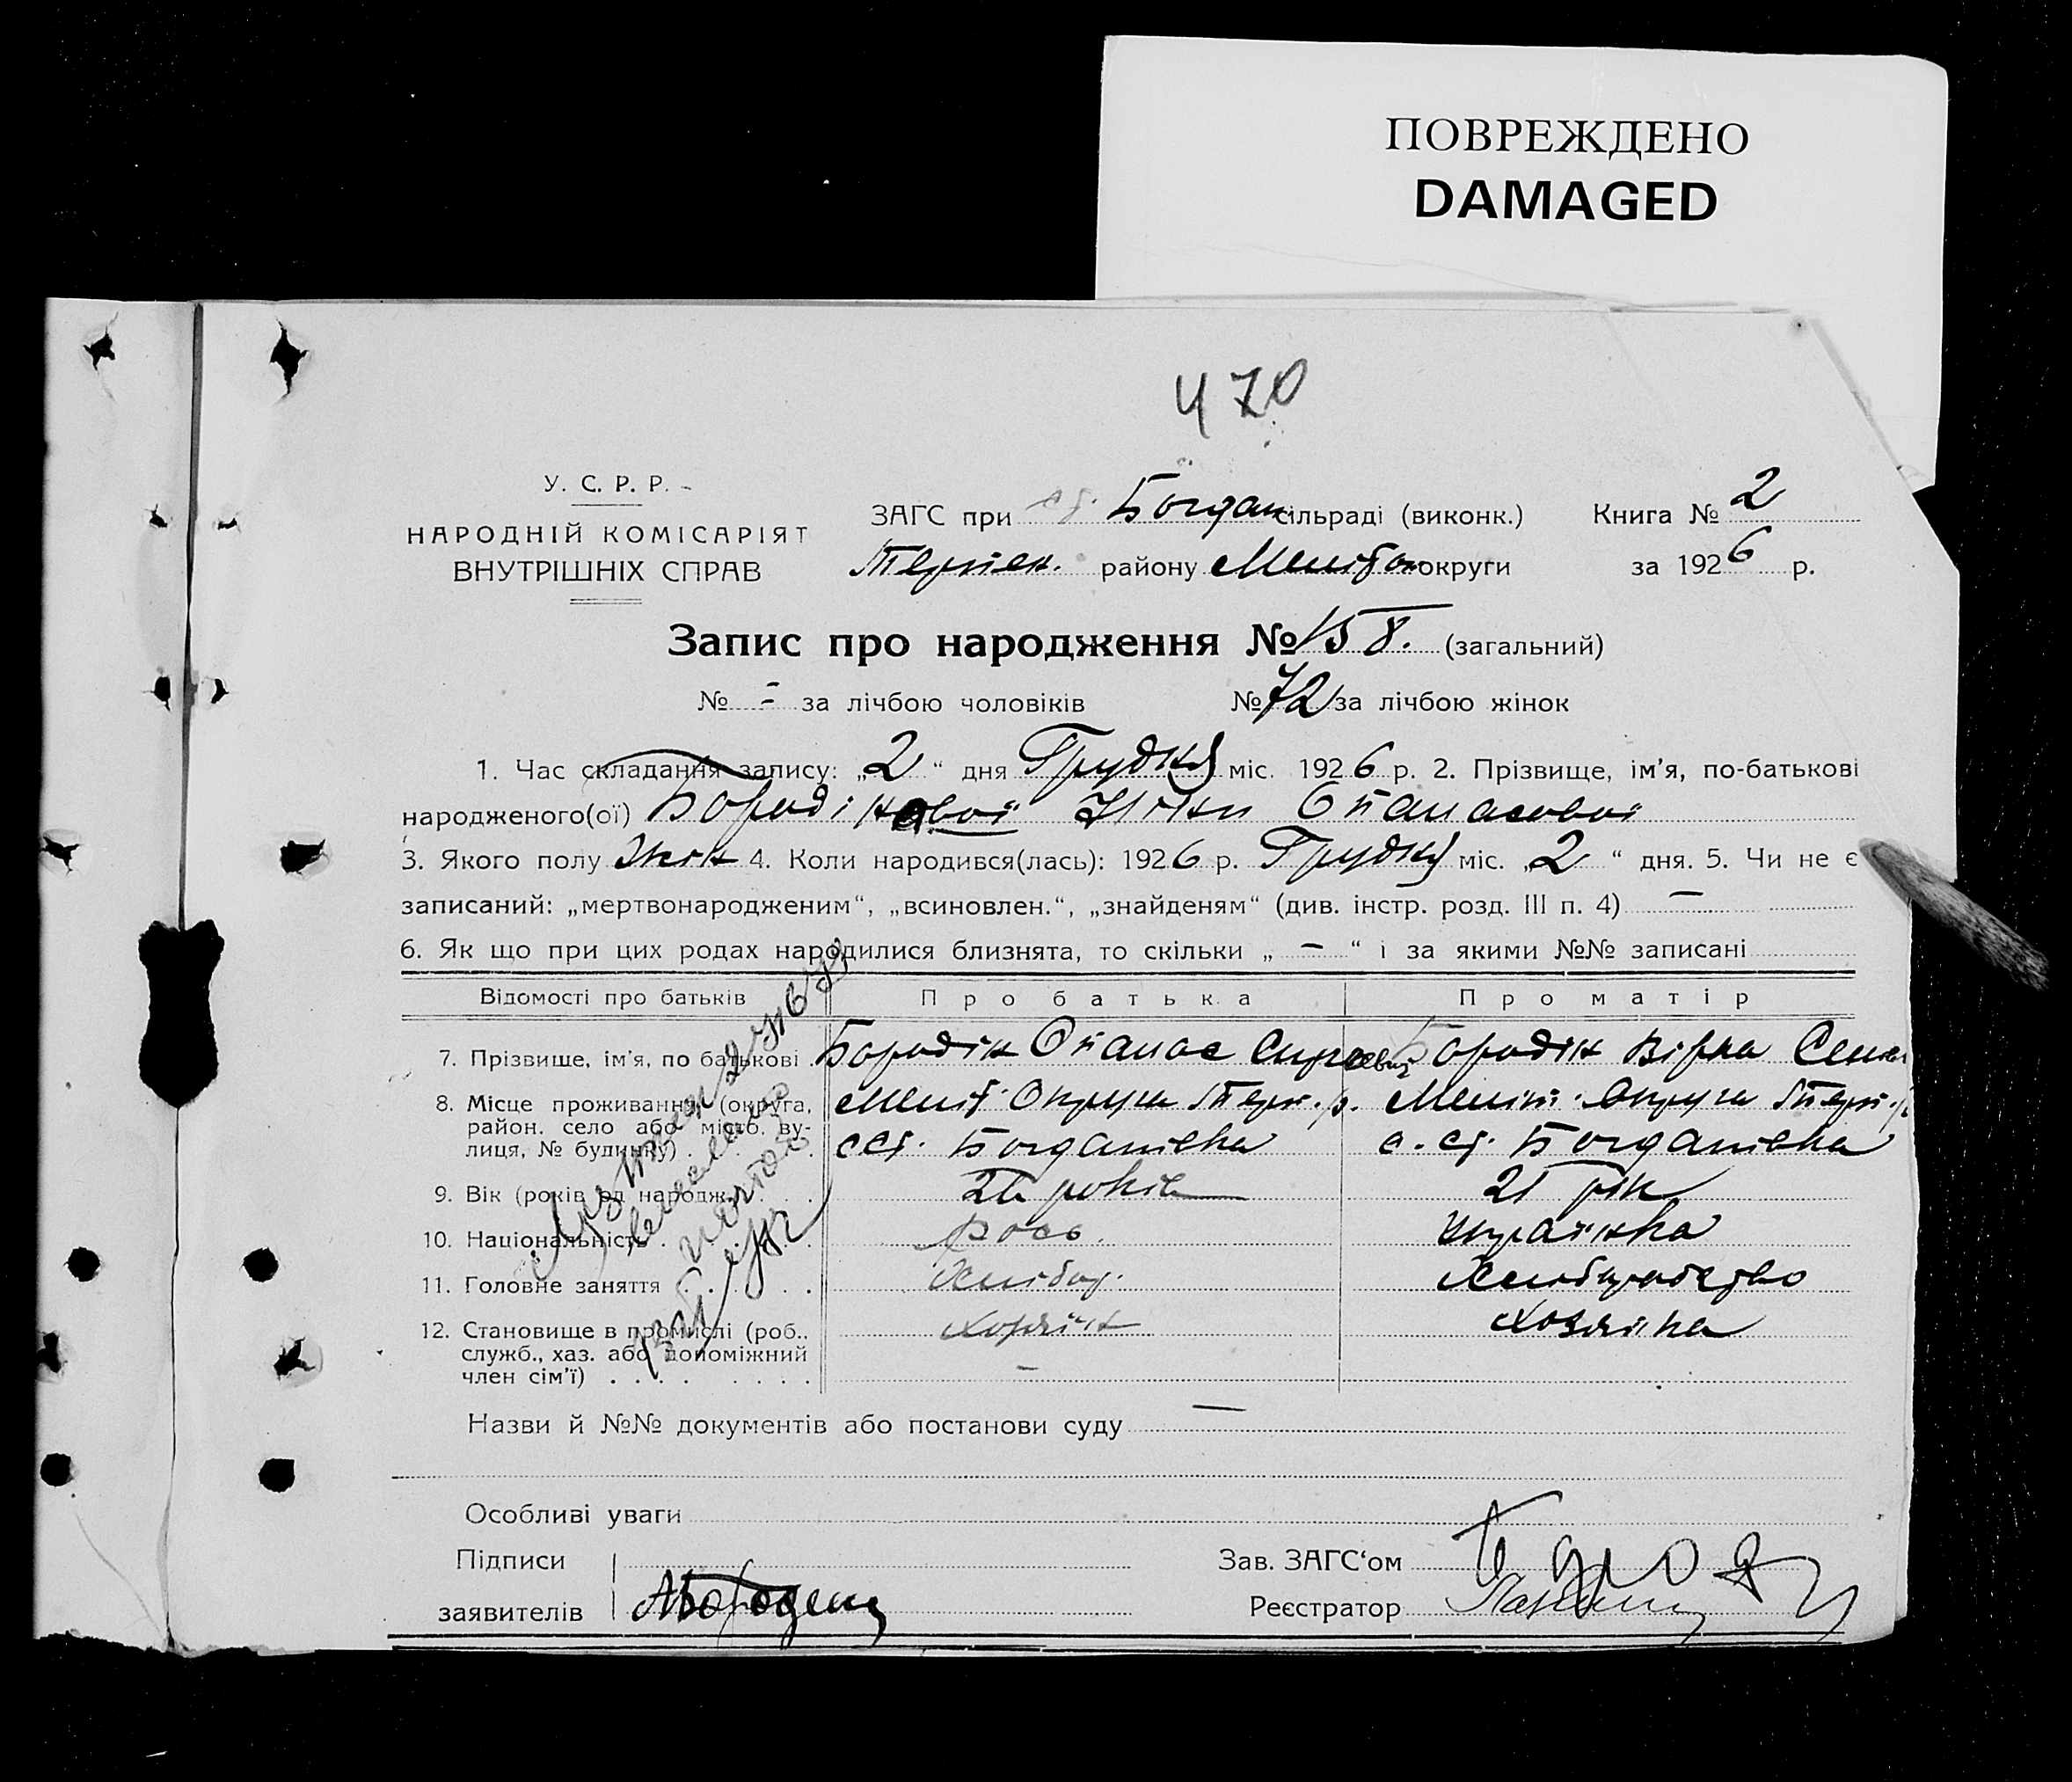 ПОВРЕЖДЕНО
DAMAGED
470
У. С. Р. Р.
НАРОДНІЙ КОМІСАРІЯТ
ВНУТРІШНІХ СПРАВ
ЗАГС при Богдан сільраді (виконк.) Книга № 2
Терпен. району Меліто округи за 1926 р.
Запис про народження № 158. (загальний)
№ - за лічбою чоловіків № 72 за лічбою жінок
1. Час складання запису: „2“ дня Грудня міс. 1926 р. 2. Прізвище, ім’я, по-батькові
народженого(ої) Бородікової Ніни Опанасової
3. Якого полу Жін 4. Коли народився(лась): 1926 р. Грудня міс. „2“ дня. 5. Чи не є
записаний: „мертвонародженим“, „всиновлен.“, „знайденям“ (див. інстр. розд. III п. 4) —
6. Як що при цих родах народилися близнята, то скільки „ — “ і за якими №№ записані
Відомості про батьків Про батька Про матір
7. Прізвище, ім’я, по батькові Бородін Опанас Бородін Вірка
8. Місце проживання (округа, Меліт. Округа Терп. р. Меліт. Округа Терп. р.
район. село або місто. ву-
лиця, № будинку) Богданівка Богданівка
9. Вік (років од народж.) 26 років 21 рік
10. Національність рось. Українка
11. Головне заняття Хлібор. Хліборобство
12. Становище в промислі (роб., хозяїн хозяїка
служб., хаз. або допоміжний
член сім’ї) —
Назви й №№ документів або постанови суду —
Особливі уваги
Підписи
заявителів
Зав. ЗАГС‘ом
Реєстратор